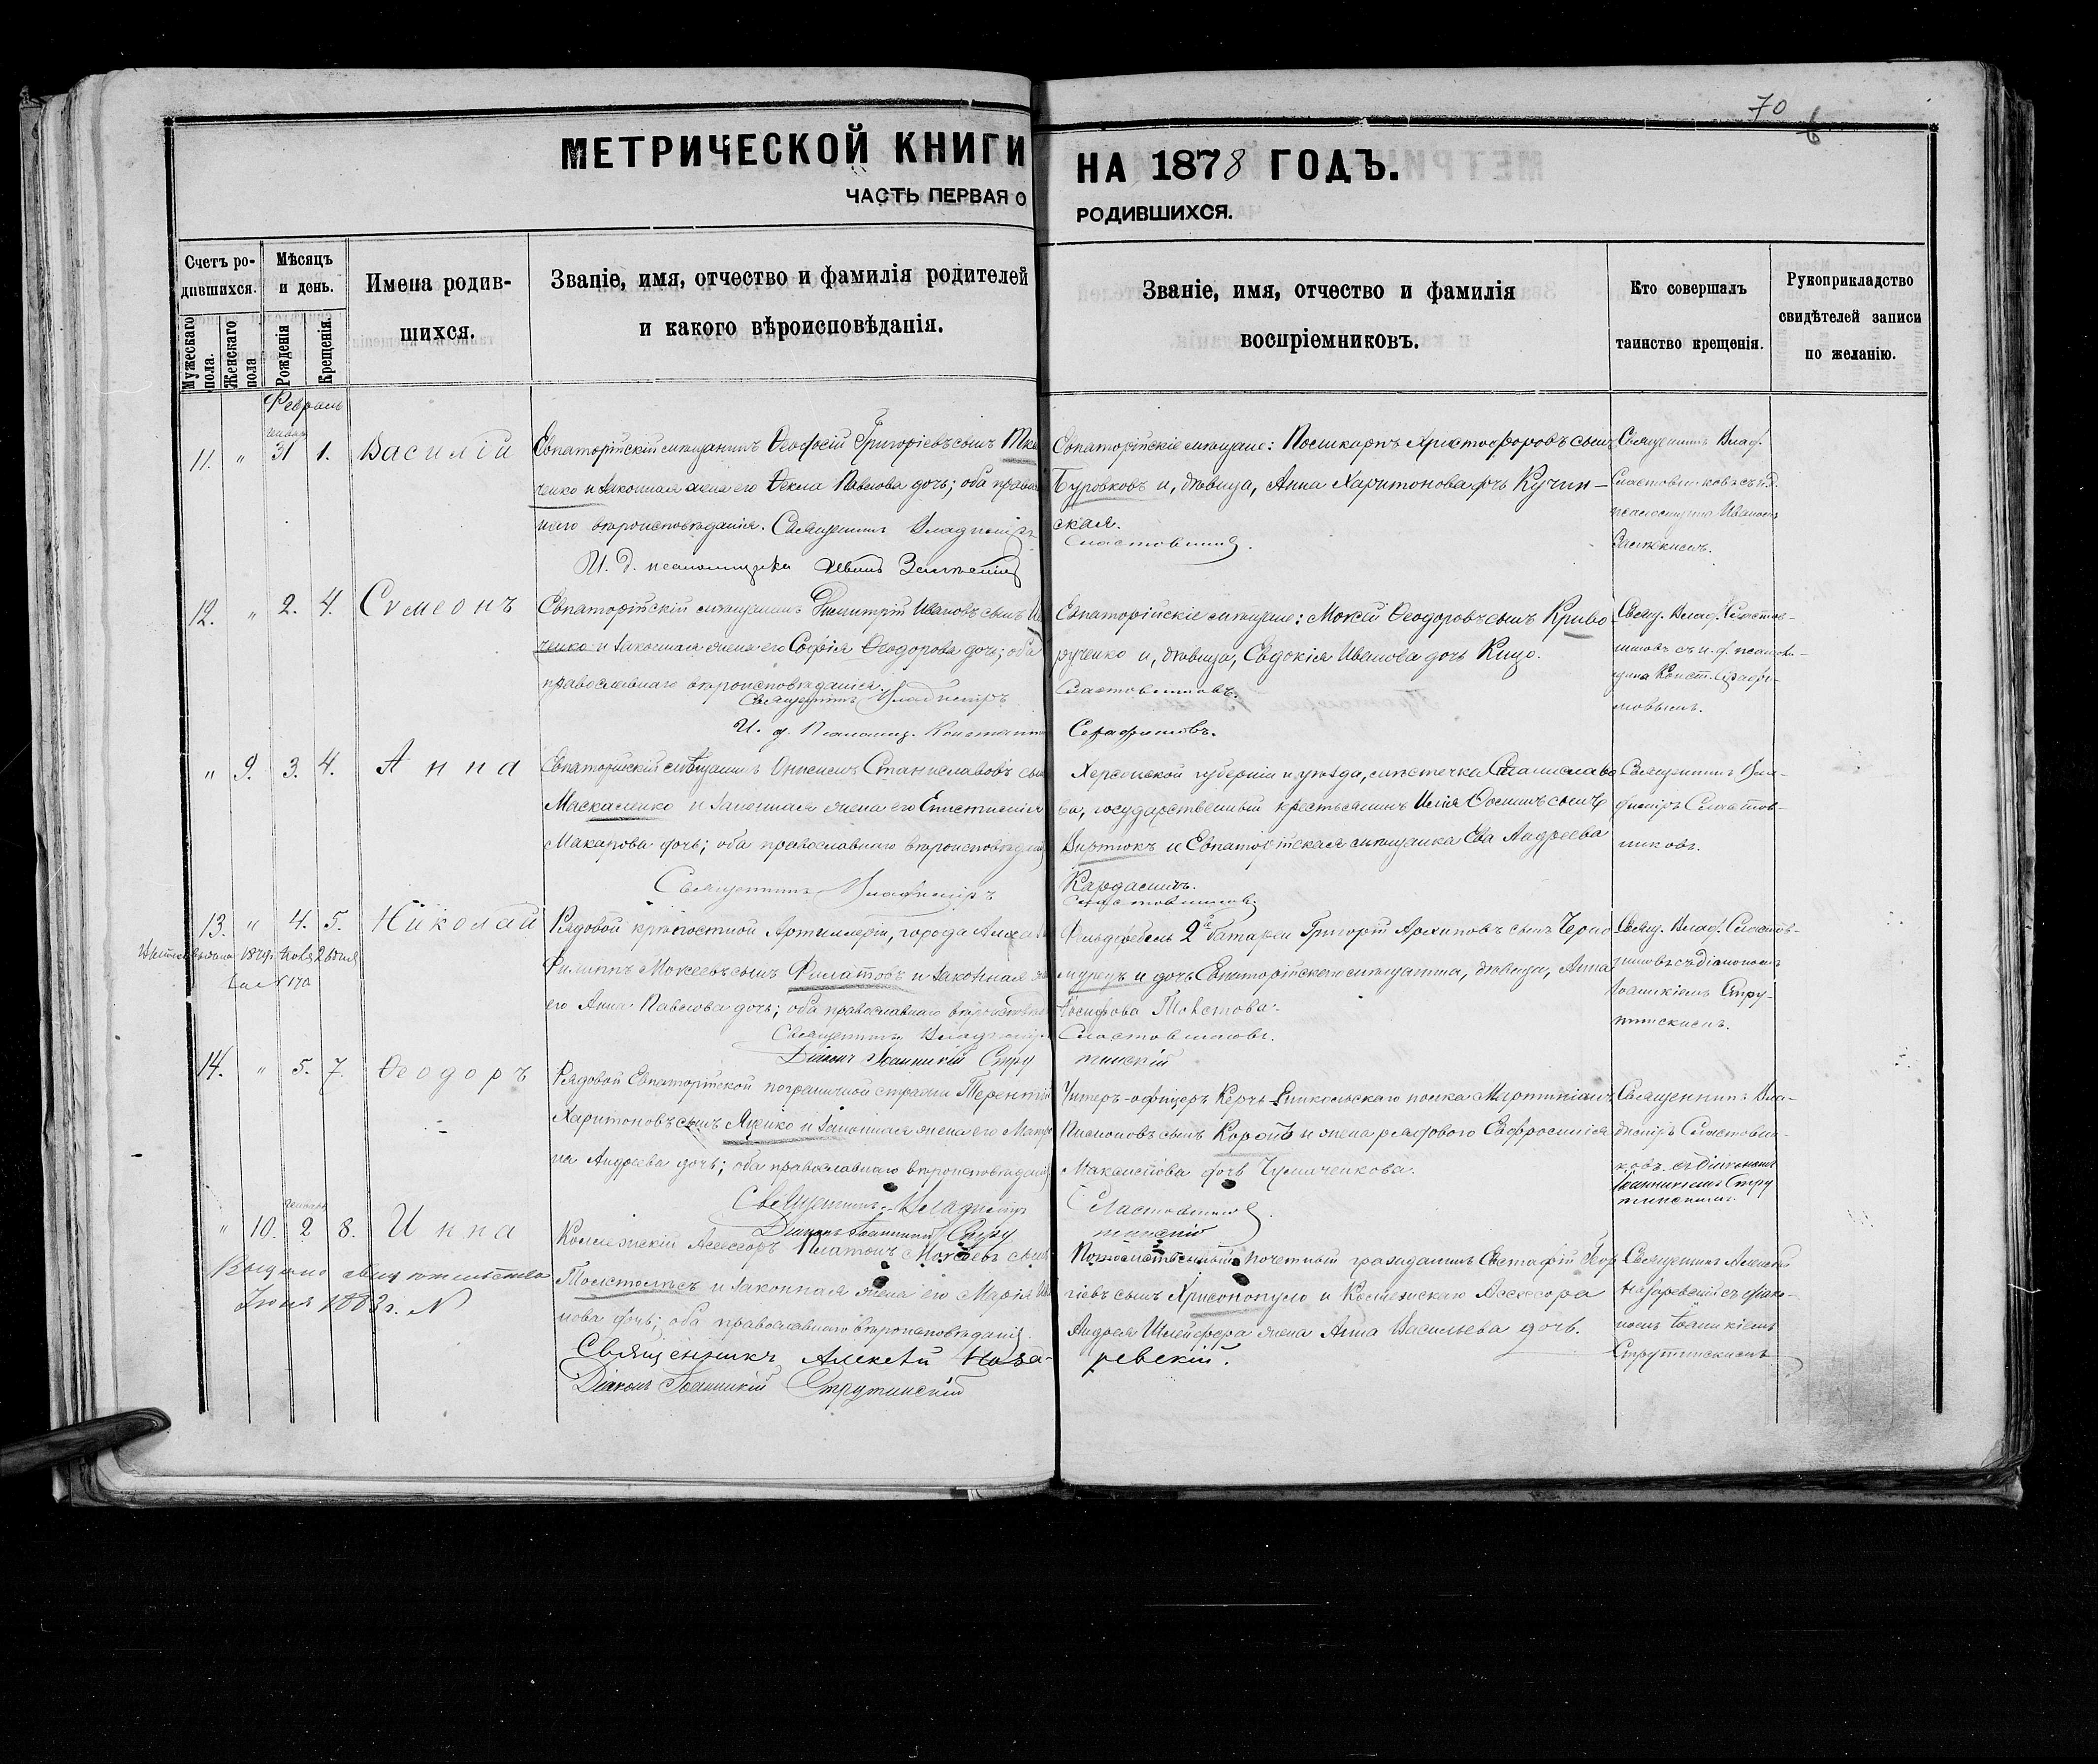 70
6
МЕТРИЧЕСКОЙ КНИГИ НА 1878 ГОДЪ.
ЧАСТЬ ПЕРВАЯ О РОДИВШИХСЯ.
Счетъ родившихся.
Мужескаго пола.
Женскаго пола
Мѣсяцъ и день.
Рожденія
Крещенія.
Имена родив-
шихся.
Званіе, имя, отчество и фамилія родителей
и какого вѣроисповѣданія.
Званіе, имя, отчество и фамилія
воспріемниковъ.
Кто совершалъ
таинство крещенія.
Рукоприкладство
свидѣтелей записи
по желанію.
Февраль
11. " 31 1. Василій
Евпаторійскій мѣщанинъ Ѳеодосій Григорьевъ сынъ Тка
ченко и законная жена его Ѳекла Павлова дочь; оба право
вѣроисповѣданія. Священникъ Владиміръ
И. д. псаломщика
Евпаторійскіе мѣщане: Поликарпъ Христофоровъ сынъ
Буровковъ и, дѣвица, Анна Харитонова дочь Кучин-
ская.
Сластовниковъ.
Священникъ Влад.
Сластовниковъ съ и. д.
псаломщика Иваномъ
12. " 2. 4. Сѵмеонъ
Евпаторійскій мѣщанинъ Димитрій Ивановъ сынъ
ченко и законная жена его Софія Ѳеодорова дочь; оба
православнаго вѣроисповѣданія.
Священникъ Владиміръ
И. д. Псаломщ. Константинъ
Евпаторійскіе мѣщане: Моѵсей Ѳеодоровъ сынъ Криво-
рученко и, дѣвица, Евдокія Иванова дочь Кицо.
Сластовниковъ.
Серафимовъ.
Свящ. Влад. Сластов-
никовъ съ и. д. псалом-
щика Конст. Серафи-
мовымъ.
" 9. 3. 4. Анна
Евпаторійскій мѣщанинъ Онисимъ Станиславовъ сынъ
Маскаленко и законная жена его Епистимія
Макарова дочь; оба православнаго вѣроисповѣданія
Священникъ Владиміръ
Херсонской губерніи и уѣзда, мѣстечка Станиславо
ва, государственный крестьянинъ Илія сынъ
и Евпаторійская мѣщанка Ева Андреева
Кардасишъ.
Сластовниковъ.
Священникъ Вла-
диміръ Сластов-
никовъ.
13. " 4. 5. Николай
Рядовой крѣпостной Артиллеріи, города
Филиппъ Моѵсеевъ сынъ Филатовъ и законная
его Анна Павлова дочь; оба православнаго
Священникъ Владиміръ
Діаконъ Іоанникій Стру
Фельдфебель 2й батареи Григорій Архиповъ сынъ
и дочь Евпаторійскаго мѣщанина, дѣвица, Анна
Іосифова
Сластовниковъ.
тинскій
Свящ. Влад. Сластов-
никовъ съ діакономъ
Іоанникіемъ Стру-
тинскимъ.
14. " 5. 7. Ѳеодоръ
Рядовой Евпаторійской пограничной стражи Терентій
Харитоновъ сынъ Яценко и законная жена его Матро
на Андреева дочь; оба православнаго вѣроисповѣданія
Священникъ Владиміръ
Діаконъ Іоанникій Стру
Унтеръ-офицеръ Керчь-Еникольскаго полка
сынъ и жена рядового Евфросинія
Максимова дочь Чумаченкова.
Сластовниковъ.
тинскій
Священникъ Вла-
диміръ Сластовни-
ковъ съ діакономъ
Іоанникіемъ Стру
тинскимъ.
" 10. 2 8. Инна
Коллежскій Асессоръ Платонъ Моѵсеевъ сынъ
и законная жена его Марія Ива
нова дочь; оба православнаго вѣроисповѣданія.
Священникъ Алексѣй Наза-
Діаконъ Іоанникій Струтинскій
Потомственный почетный гражданинъ Евстафій Геор
гіевъ сынъ Хрисопопуло и Коллежскаго Ассесора
Андрея Шлейфера жена Анна Васильева дочь.
ревскій.
Священникъ Алексѣй
Назаревскій съ діако-
номъ Іоанникіемъ
Струтинскимъ
Выдано
Іюня 1883 г. №